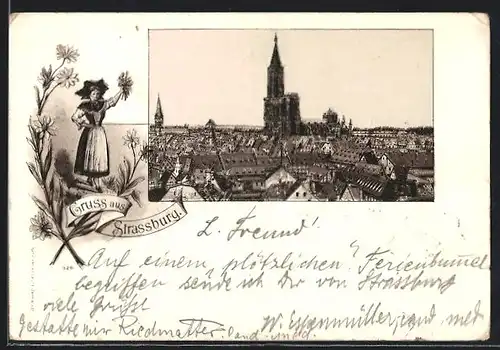 Gruss aus
Strassburg.
L. Freund!
Auf einem plötzlichen Ferienbummel
begriffen sende ich dir von Strassburg
viele Grüße
W. med
Gestatte mir Riedmatter cand. med